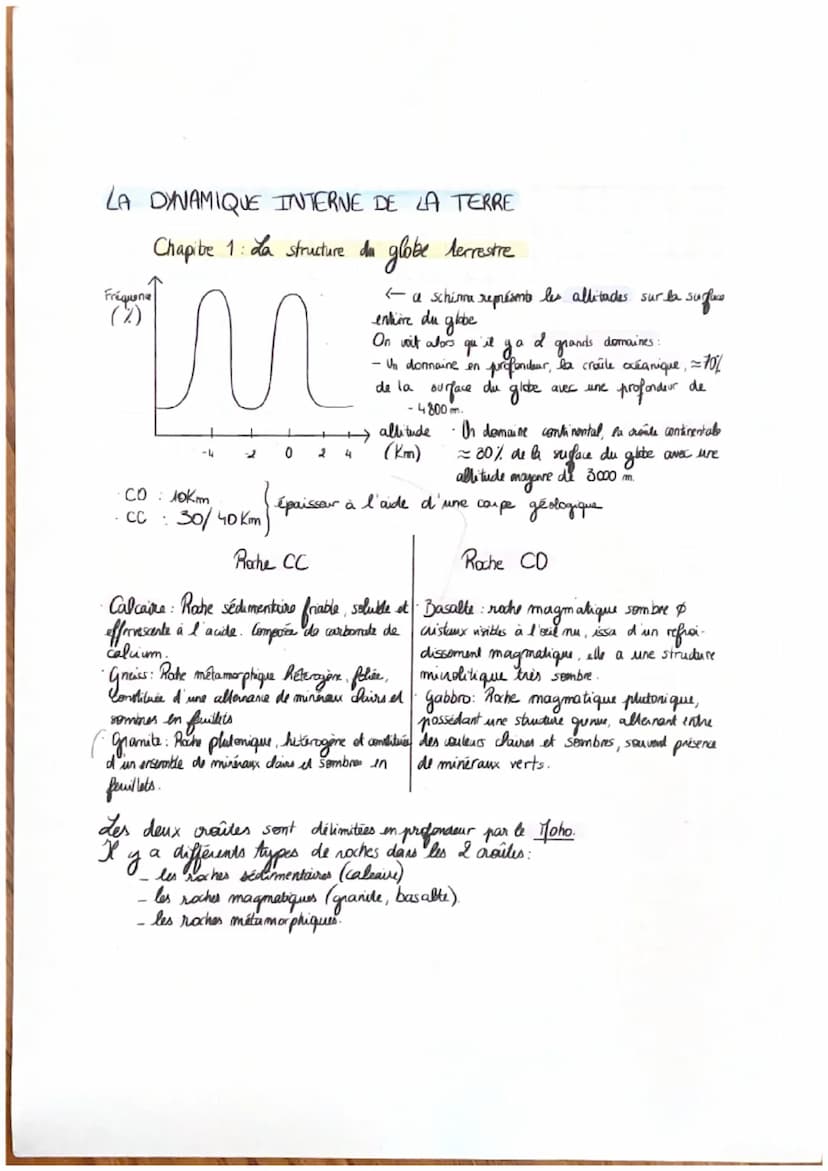 LA DYNAMIQUE INTERNE DE LA TERRE
Chapitre 1 : La structure du globe terrestre
Fréquence
(%)
← ce schéma représente les altitudes sur la surface
entière du globe
On voit alors qu'il y a 2 grands domaines :
- Un domaine en profondeur, la croûte océanique, ≈70%
de la surface du globe avec une profondeur de
- 4800 m.
-4 -2 0 2 4
altitude
(Km)
· Un domaine continental, la croûte continentale
≈ 30% de la surface du globe avec une
altitude moyenne de 3000 m.
· CO : 10Km
· CC : 30/40Km
épaisseur à l'aide d'une coupe géologique
Roche CC
· Calcaire : Roche sédimentaire friable, soluble et
effervescente à l'acide. Composée de carbonate de
calcium.
· Gneiss : Roche métamorphique hétérogène, foliée,
constituée d'une alternance de minéraux clairs et
sombres en feuillets
· Granite : Roche plutonique, hétérogène et constituée
d'un ensemble de minéraux clairs et sombres en
feuillets.
Roche CO
· Basalte : roche magmatique sombre ∅
cristaux visibles à l'œil nu, issa d'un refroi-
dissement magmatique, elle a une structure
microlitique très sombre.
· Gabbro : Roche magmatique plutonique,
possédant une structure grenue, alternant entre
des couleurs claires et sombres, souvent présence
de minéraux verts.
Les deux croûtes sont délimitées en profondeur par le Moho.
Il y a différents types de roches dans les 2 croûtes :
- les roches sédimentaires (calcaire)
- les roches magmatiques (granite, basalte).
- les roches métamorphiques.